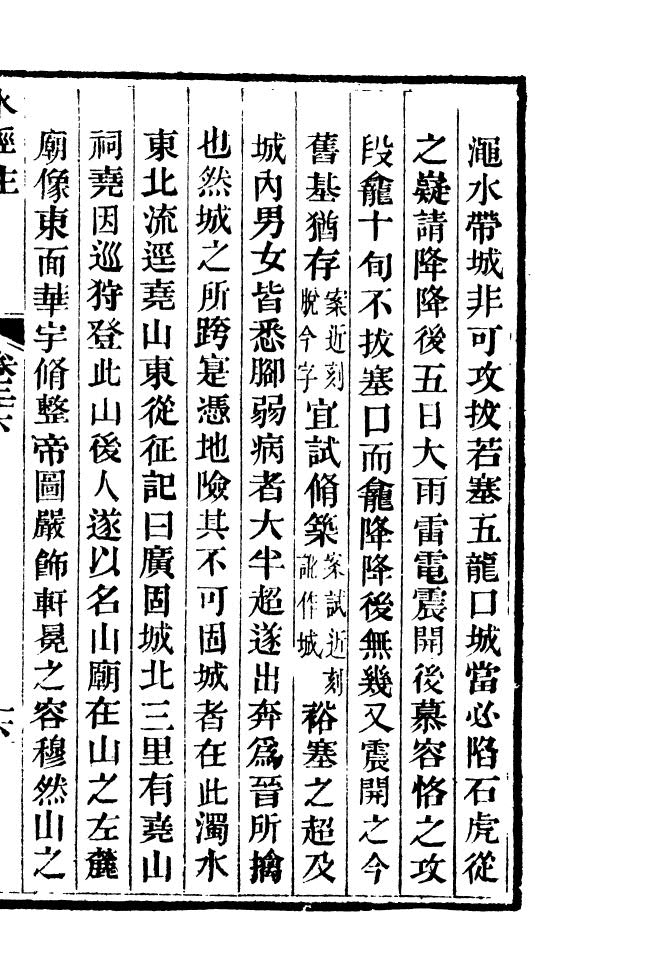 澠水帶城非可攻拔若塞五龍口城當必陷石虎從
之嶷請降降後五日大雨雷電震開後慕容恪之攻
段龕十旬不拔塞口而龕降降後無幾又震開之今
舊基猶存案近刻脫今字宜試脩築案試近刻訛作城裕塞之超及
城內男女皆悉腳弱病者大半超遂出奔爲晉所擒
也然城之所跨寔憑地險其不可固城者在此濁水
東北流逕堯山東從征記曰廣固城北三里有堯山
祠堯因巡狩登此山後人遂以名山廟在山之左麓
廟像東面華宇脩整帝圖嚴飾軒冕之容穆然山之
水經注